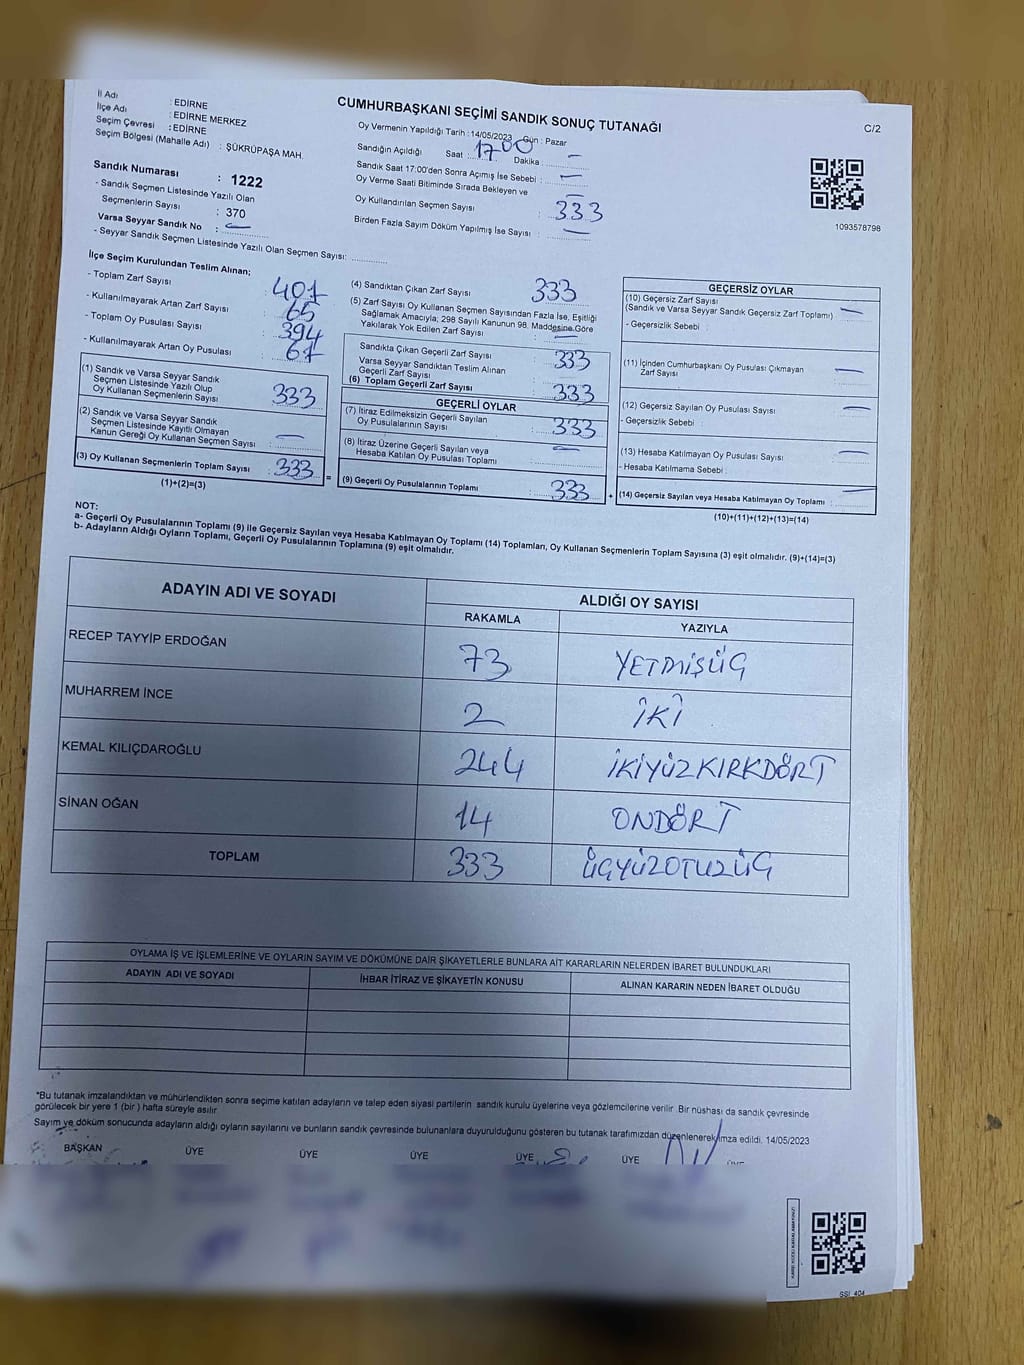 İl Adı : EDİRNE
İlçe Adı : EDİRNE MERKEZ
Seçim Çevresi : EDİRNE
Seçim Bölgesi (Mahalle Adı) : ŞÜKRÜPAŞA MAH.
Sandık Numarası : 1222
- Sandık Seçmen Listesinde Yazılı Olan
Seçmenlerin Sayısı : 370
Varsa Seyyar Sandık No : —
- Seyyar Sandık Seçmen Listesinde Yazılı Olan Seçmen Sayısı:
CUMHURBAŞKANI SEÇİMİ SANDIK SONUÇ TUTANAĞI
Oy Vermenin Yapıldığı Tarih :14/05/2023 Gün : Pazar
Sandığın Açıldığı Saat : 17 00 Dakika : —
Sandık Saat 17:00'den Sonra Açımış İse Sebebi : —
Oy Verme Saati Bitiminde Sırada Bekleyen ve —
Oy Kullandırılan Seçmen Sayısı : 333
Birden Fazla Sayım Döküm Yapılmış İse Sayısı : —
C/2
1093578798
İlçe Seçim Kurulundan Teslim Alınan;
- Toplam Zarf Sayısı : 401
- Kullanılmayarak Artan Zarf Sayısı : 65
- Toplam Oy Pusulası Sayısı : 394
- Kullanılmayarak Artan Oy Pusulası : 61
(1) Sandık ve Varsa Seyyar Sandık
Seçmen Listesinde Yazılı Olup
Oy Kullanan Seçmenlerin Sayısı : 333
(2) Sandık ve Varsa Seyyar Sandık
Seçmen Listesinde Kayıtlı Olmayan
Kanun Gereği Oy Kullanan Seçmen Sayısı : —
(3) Oy Kullanan Seçmenlerin Toplam Sayısı : 333
(1)+(2)=(3)
(4) Sandıktan Çıkan Zarf Sayısı : 333
(5) Zarf Sayısı Oy Kullanan Seçmen Sayısından Fazla İse, Eşitliği
Sağlamak Amacıyla; 298 Sayılı Kanunun 98. Maddesine Göre
Yakılarak Yok Edilen Zarf Sayısı : —
Sandıkta Çıkan Geçerli Zarf Sayısı : 333
Varsa Seyyar Sandıktan Teslim Alınan
Geçerli Zarf Sayısı : —
(6) Toplam Geçerli Zarf Sayısı : 333
GEÇERLİ OYLAR
(7) İtiraz Edilmeksizin Geçerli Sayılan
Oy Pusulalarının Sayısı : 333
(8) İtiraz Üzerine Geçerli Sayılan veya —
Hesaba Katılan Oy Pusulası Toplamı :
=
(9) Geçerli Oy Pusulalarının Toplamı : 333
+
GEÇERSİZ OYLAR
(10) Geçersiz Zarf Sayısı
(Sandık ve Varsa Seyyar Sandık Geçersiz Zarf Toplamı) : —
- Geçersizlik Sebebi :
(11) İçinden Cumhurbaşkanı Oy Pusulası Çıkmayan
Zarf Sayısı : —
(12) Geçersiz Sayılan Oy Pusulası Sayısı : —
- Geçersizlik Sebebi :
(13) Hesaba Katılmayan Oy Pusulası Sayısı : —
- Hesaba Katılmama Sebebi :
(14) Geçersiz Sayılan veya Hesaba Katılmayan Oy Toplamı : —
(10)+(11)+(12)+(13)=(14)
NOT:
a- Geçerli Oy Pusulalarının Toplamı (9) ile Geçersiz Sayılan veya Hesaba Katılmayan Oy Toplamı (14) Toplamları, Oy Kullanan Seçmenlerin Toplam Sayısına (3) eşit olmalıdır. (9)+(14)=(3)
b- Adayların Aldığı Oyların Toplamı, Geçerli Oy Pusulalarının Toplamına (9) eşit olmalıdır.
ADAYIN ADI VE SOYADI ALDIĞI OY SAYISI
RAKAMLA YAZIYLA
RECEP TAYYİP ERDOĞAN 73 YETMİŞÜÇ
MUHARREM İNCE 2 İKİ
KEMAL KILIÇDAROĞLU 244 İKİYÜZKIRKDÖRT
SİNAN OĞAN 14 ONDÖRT
TOPLAM 333 ÜÇYÜZOTUZÜÇ
OYLAMA İŞ VE İŞLEMLERİNE VE OYLARIN SAYIM VE DÖKÜMÜNE DAİR ŞİKAYETLERLE BUNLARA AİT KARARLARIN NELERDEN İBARET BULUNDUKLARI
ADAYIN ADI VE SOYADI İHBAR İTİRAZ VE ŞİKAYETİN KONUSU ALINAN KARARIN NEDEN İBARET OLDUĞU
*Bu tutanak imzalandıktan ve mühürlendikten sonra seçime katılan adayların ve talep eden siyasi partilerin sandık kurulu üyelerine veya gözlemcilerine verilir. Bir nüshası da sandık çevresinde
görülecek bir yere 1 (bir ) hafta süreyle asılır.
Sayım ve döküm sonucunda adayların aldığı oyların sayılarını ve bunların sandık çevresinde bulunanlara duyurulduğunu gösteren bu tutanak tarafımızdan düzenlenerek imza edildi. 14/05/2023
BAŞKAN ÜYE ÜYE ÜYE ÜYE ÜYE ÜYE
SSI_404